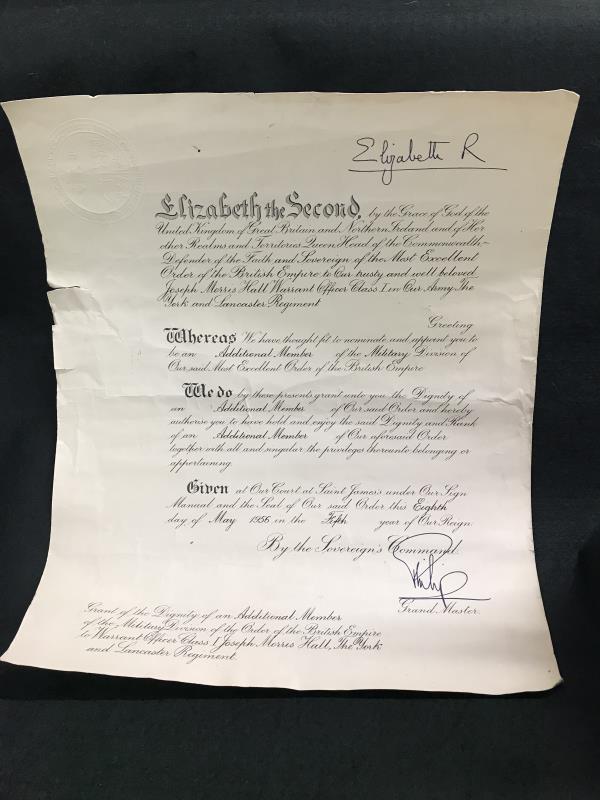 Elizabeth R
Elizabeth the Second, by the Grace of God of the
United Kingdom of Great Britain and Northern Ireland and of Her
other Realms and Territories Queen Head of the Commonwealth
Defender of the Faith and Sovereign of the Most Excellent
Order of the British Empire to Our trusty and well beloved
Joseph Morris Hall Warrant Officer Class I in Our Army The
York and Lancaster Regiment
Greeting
Whereas We have thought fit to nominate and appoint you to
be an Additional Member of the Military Division of
Our said Most Excellent Order of the British Empire
We do by these presents grant unto you the Dignity of
an Additional Member of Our said Order and hereby
authorise you to have hold and enjoy the said Dignity and Rank
of an Additional Member of Our aforesaid Order
together with all and singular the privileges thereunto belonging or
appertaining.
Given at Our Court at Saint James's under Our Sign
Manual and the Seal of Our said Order this Eighth
day of May 1956 in the Fifth year of Our Reign.
By the Sovereign's Command.
Philip
Grand Master.
Grant of the Dignity of an Additional Member
of the Military Division of the Order of the British Empire
to Warrant Officer Class I Joseph Morris Hall, The York
and Lancaster Regiment.